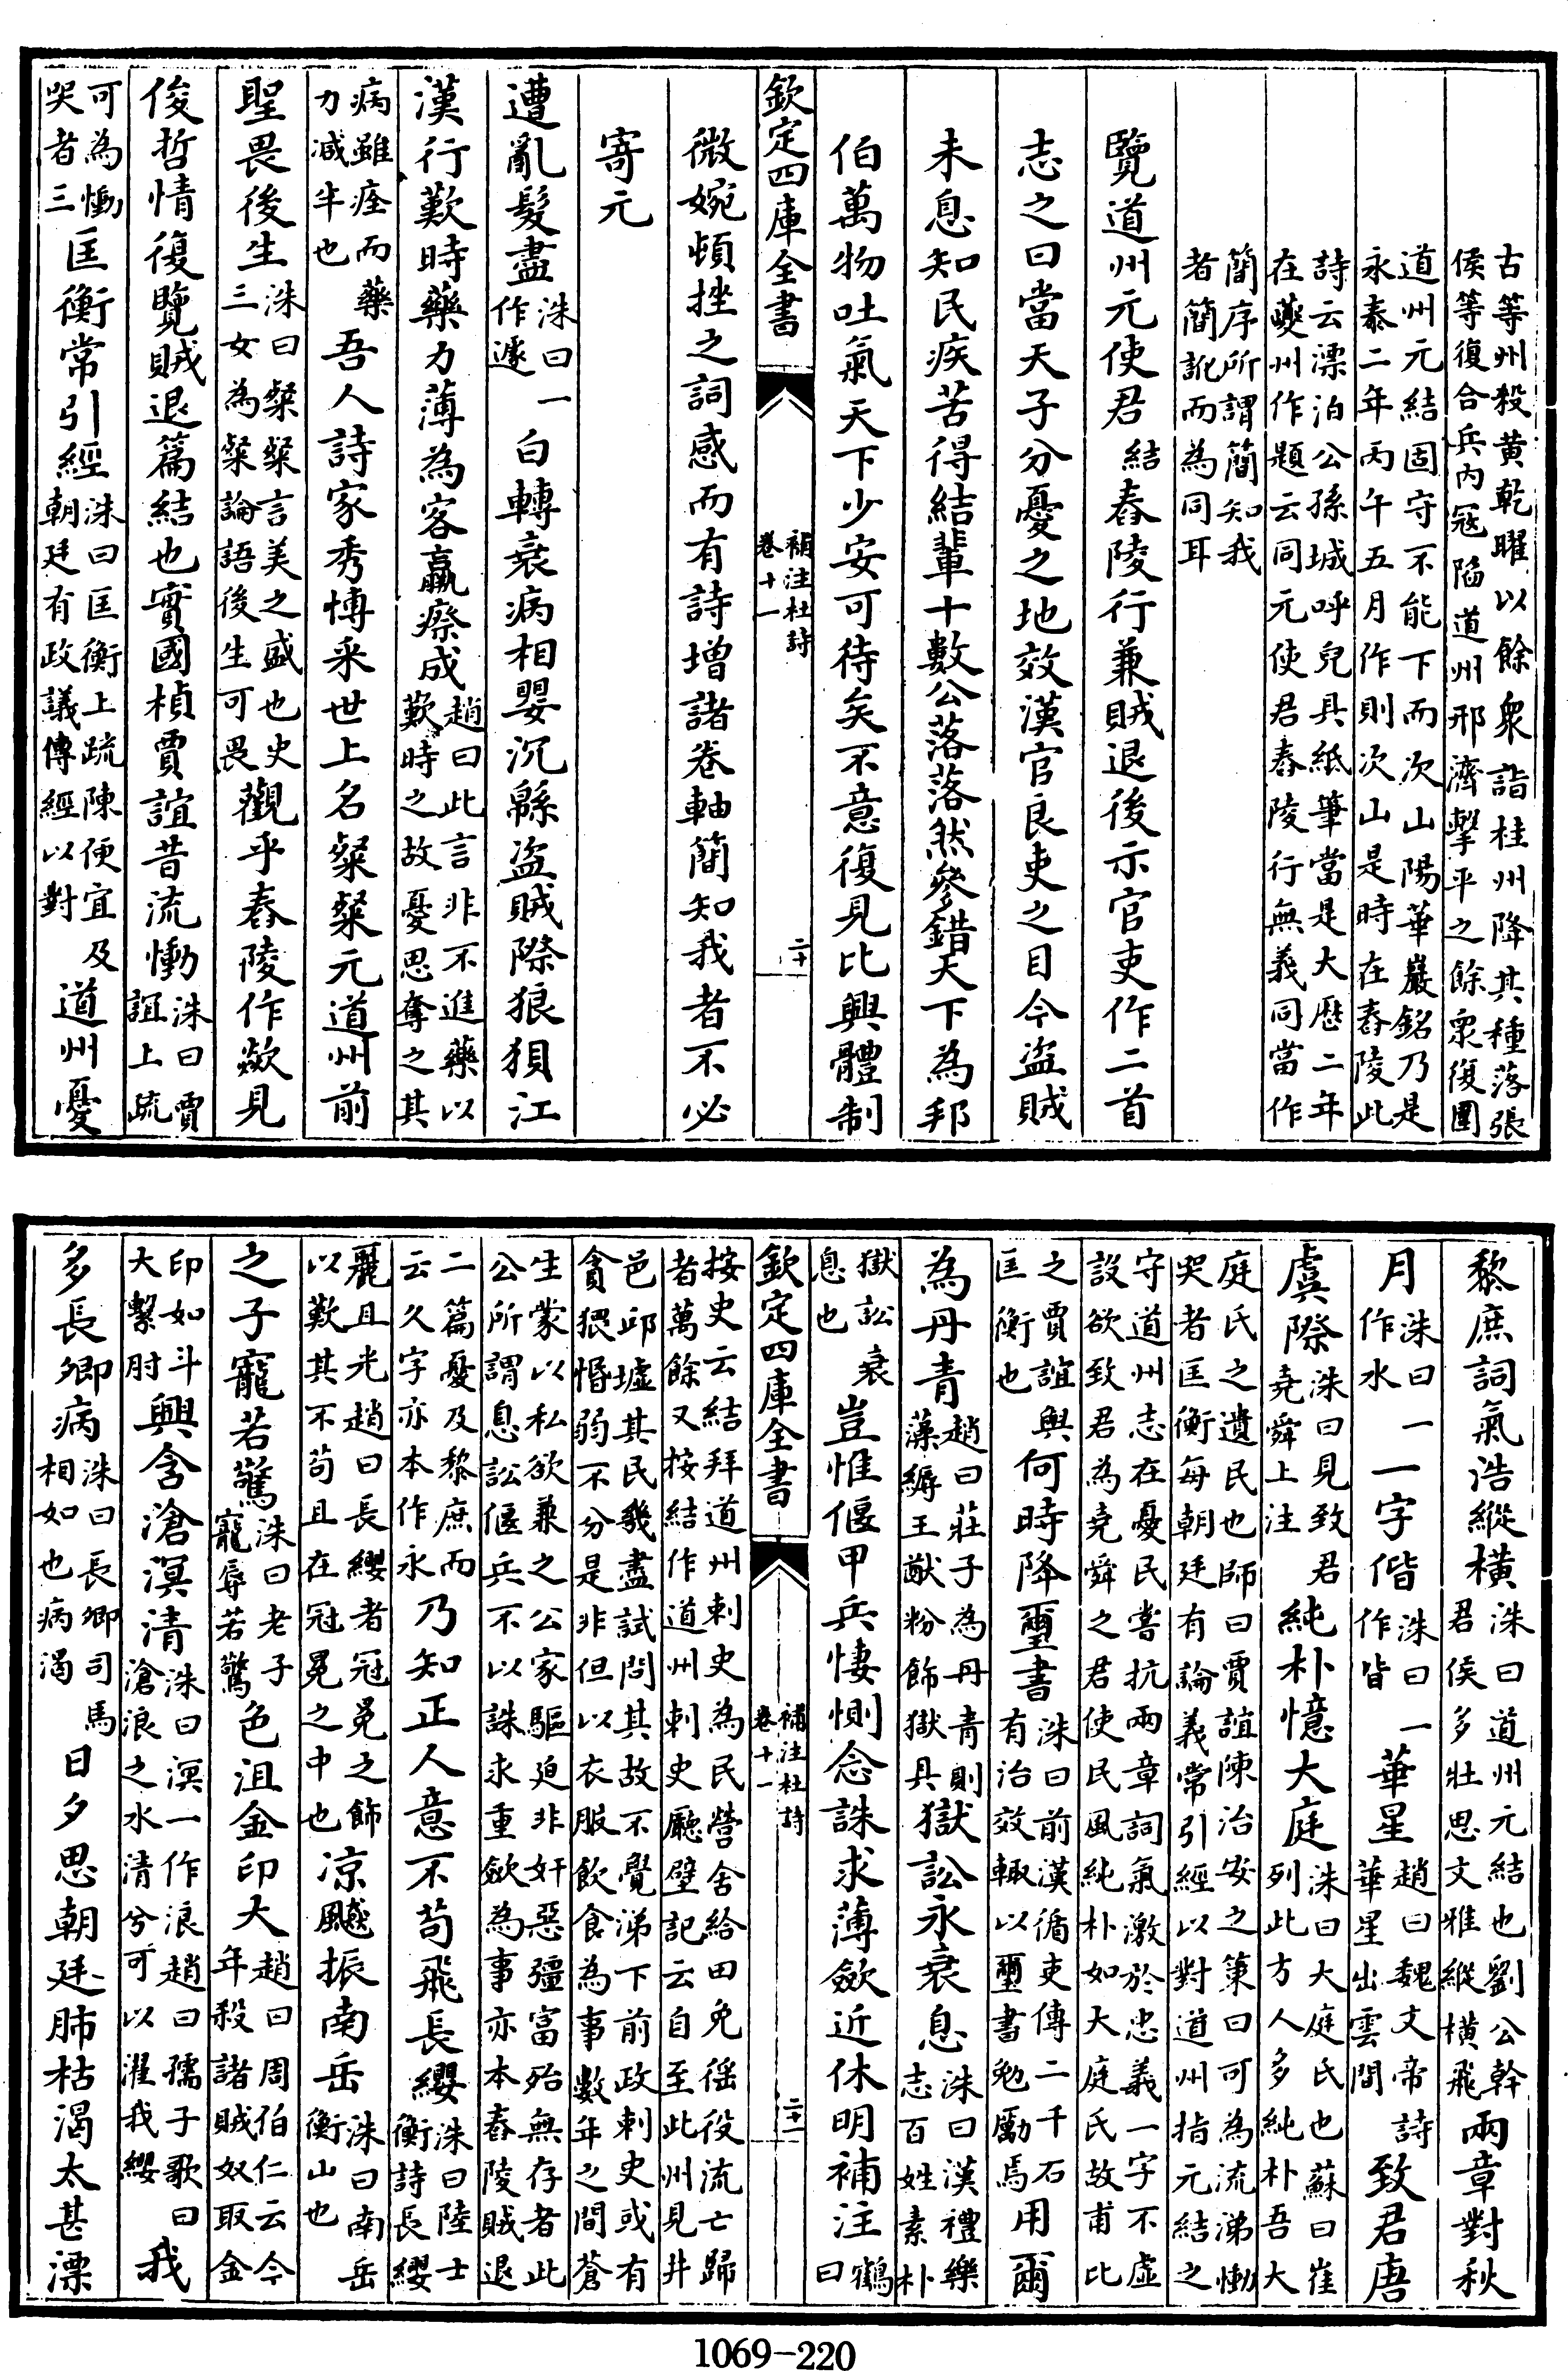 古等州殺黄乾曜以餘衆詣桂州降其種落張
侯等復合兵内冦陷道州邢濟擊平之餘衆復圍
道州元結固守不能下而次山陽華巖銘乃是
永泰二年丙午五月作則次山是時在舂陵此
詩云漂泊公孫城呼兒具紙筆當是大歴二年
在夔州作題云同元使君舂陵行無義同當作
簡序所謂簡知我
者簡訛而為同耳
覽道州元使君結舂陵行兼賊退後示官吏作二首
志之曰當天子分憂之地效漢官良吏之目今盗賊
未息知民疾苦得結輩十數公落落然參錯天下為邦
伯萬物吐氣天下少安可待矣不意復見比興體制
欽定四庫全書
補注杜詩
卷十一
二十
微婉頓挫之詞感而有詩增諸卷軸簡知我者不必
寄元
遭亂髮盡洙曰一作遽白轉衰病相嬰沉緜盗賊際狼狽江
漢行歎時藥力薄為客羸瘵成趙曰此言非不進藥以歎時之故憂思奪之其
病雖痊而藥力減半也吾人詩家秀博采世上名粲粲元道州前
聖畏後生洙曰粲粲言美之盛也史三女為粲論語後生可畏觀乎舂陵作歘見
俊哲情復覽賊退篇結也實國楨賈誼昔流慟洙曰賈誼上疏
可為慟哭者三匡衡常引經洙曰匡衡上疏陳便宜及朝廷有政議傳經以對道州憂
黎庶詞氣浩縱橫洙曰道州元結也劉公幹君侯多壯思文雅縱橫飛兩章對秋
月洙曰一作水一字偕洙曰一作皆華星趙曰魏文帝詩華星出雲間致君唐
虞際洙曰見致君堯舜上注純朴憶大庭洙曰大庭氏也蘇曰崔列此方人多純朴吾大
庭氏之遺民也師曰賈誼陳治安之策曰可為流涕慟
哭者匡衡每朝廷有論義常引經以對道州指元結之
守道州志在憂民嘗抗兩章詞氣激於忠義一字不虛
設欲致君為堯舜之君使民風純朴如大庭氏故甫比
之賈誼與匡衡也何時降璽書洙曰前漢循吏傳二千石有治效輒以璽書勉勵焉用爾
為丹青趙曰莊子為丹青則藻縟王猷粉飾獄具獄訟永衰息洙曰漢禮樂志百姓素朴
獄訟衰息也豈惟偃甲兵悽惻念誅求薄斂近休明補注鶴曰
欽定四庫全書
補注杜詩
卷十一
二十一
按史云結拜道州刺史為民營舍給田免徭役流亡歸
者萬餘又按結作道州刺史廳壁記云自至此州見井
邑邱墟其民幾盡試問其故不覺涕下前政刺史或有
貪猥惛弱不分是非但以衣服飲食為事數年之間蒼
生蒙以私欲兼之公家驅廹非奸惡彊富殆無存者此
公所謂息訟偃兵不以誅求重斂為事亦本舂陵賊退
二篇憂及黎庶而云久字亦本作永乃知正人意不苟飛長纓洙曰陸士衡詩長纓
麗且光趙曰長纓者冠冕之飾以歎其不苟且在冠冕之中也凉飈振南岳洙曰南岳衡山也
之子寵若驚洙曰老子寵辱若驚色沮金印大趙曰周伯仁云今年殺諸賊奴取金
印如斗大繫肘興含滄溟清洙曰溟一作浪趙曰孺子歌曰滄浪之水清兮可以濯我纓我
多長卿病洙曰長卿司馬相如也病渴日夕思朝廷肺枯渴太甚漂
1069-220